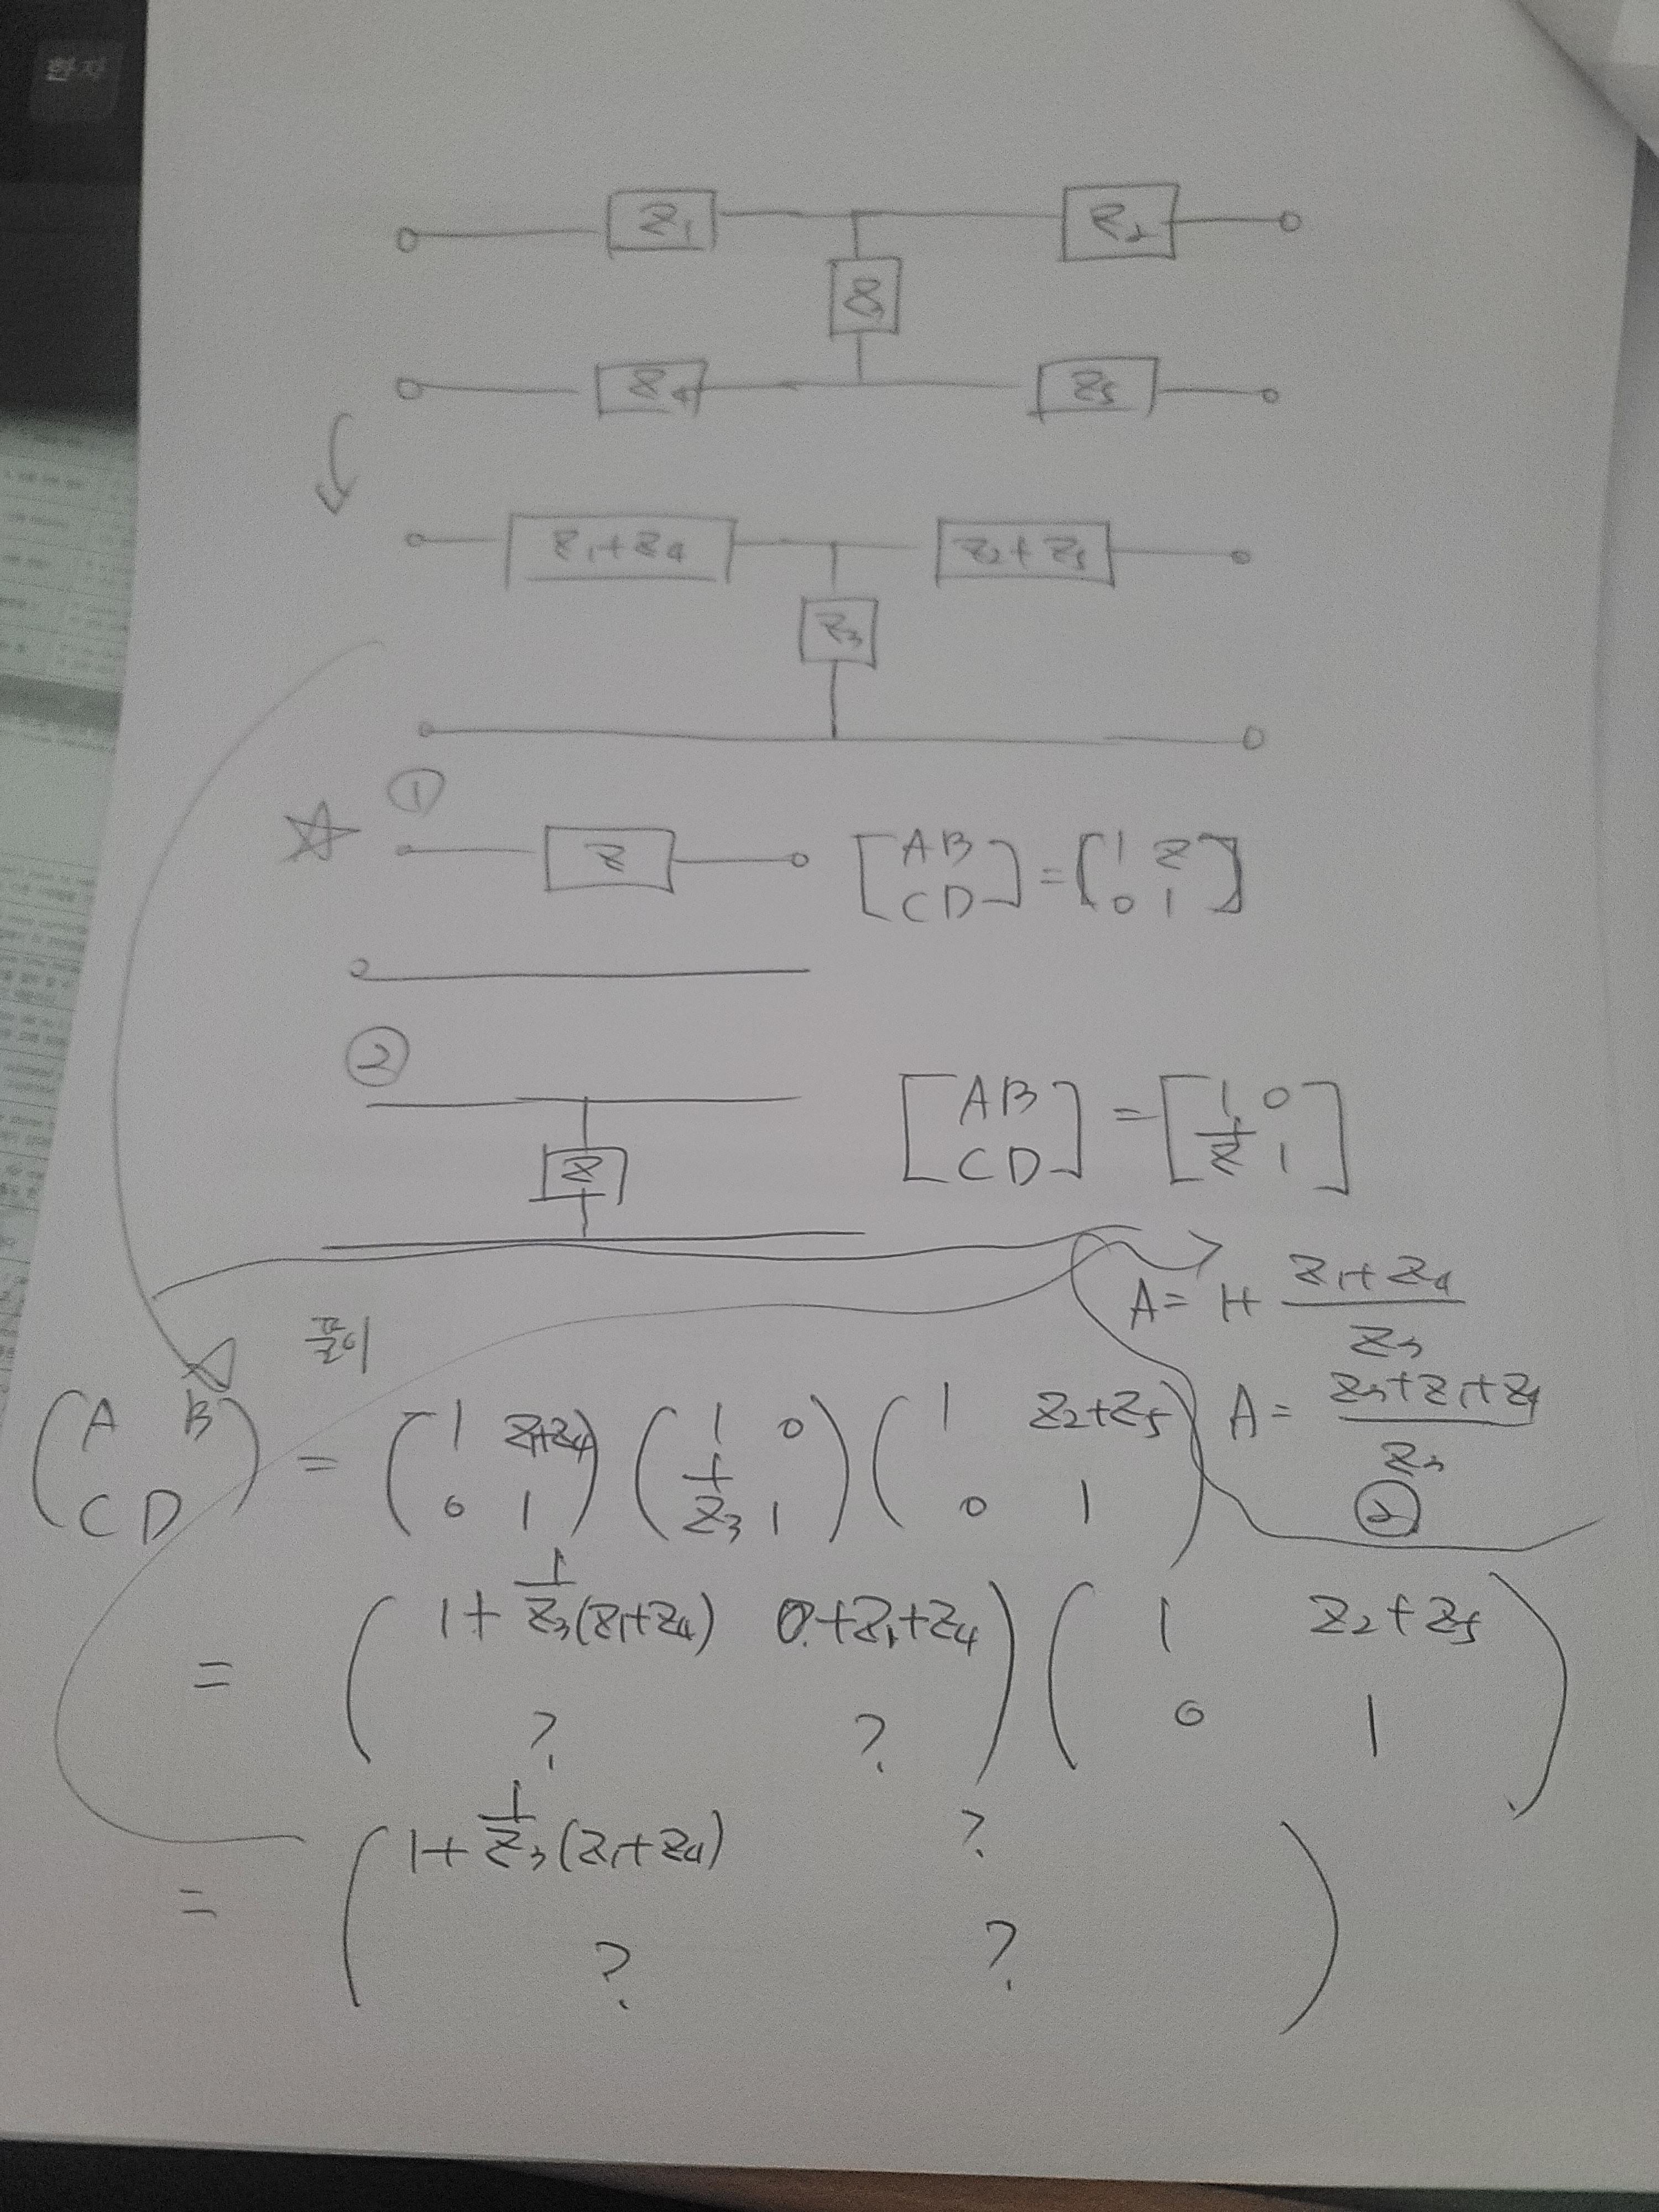 한자
Z1 Z2
Z3
Z4 Z5
Z1+Z4 Z2+Z5
Z3
①
☆ Z [A B C D] = [1 Z 0 1]
②
Z [A B C D] = [1 0 1/Z 1]
A= 1+ (Z1+Z4)/Z3
풀이
A= (Z3+Z1+Z4)/Z3
②
(A B C D) = (1 Z1+Z4 0 1) (1 0 1/Z3 1) (1 Z2+Z5 0 1)
= (1+ 1/Z3(Z1+Z4) 0+Z1+Z4 ? ?) (1 Z2+Z5 0 1)
= (1+ 1/Z3(Z1+Z4) ? ? ?)